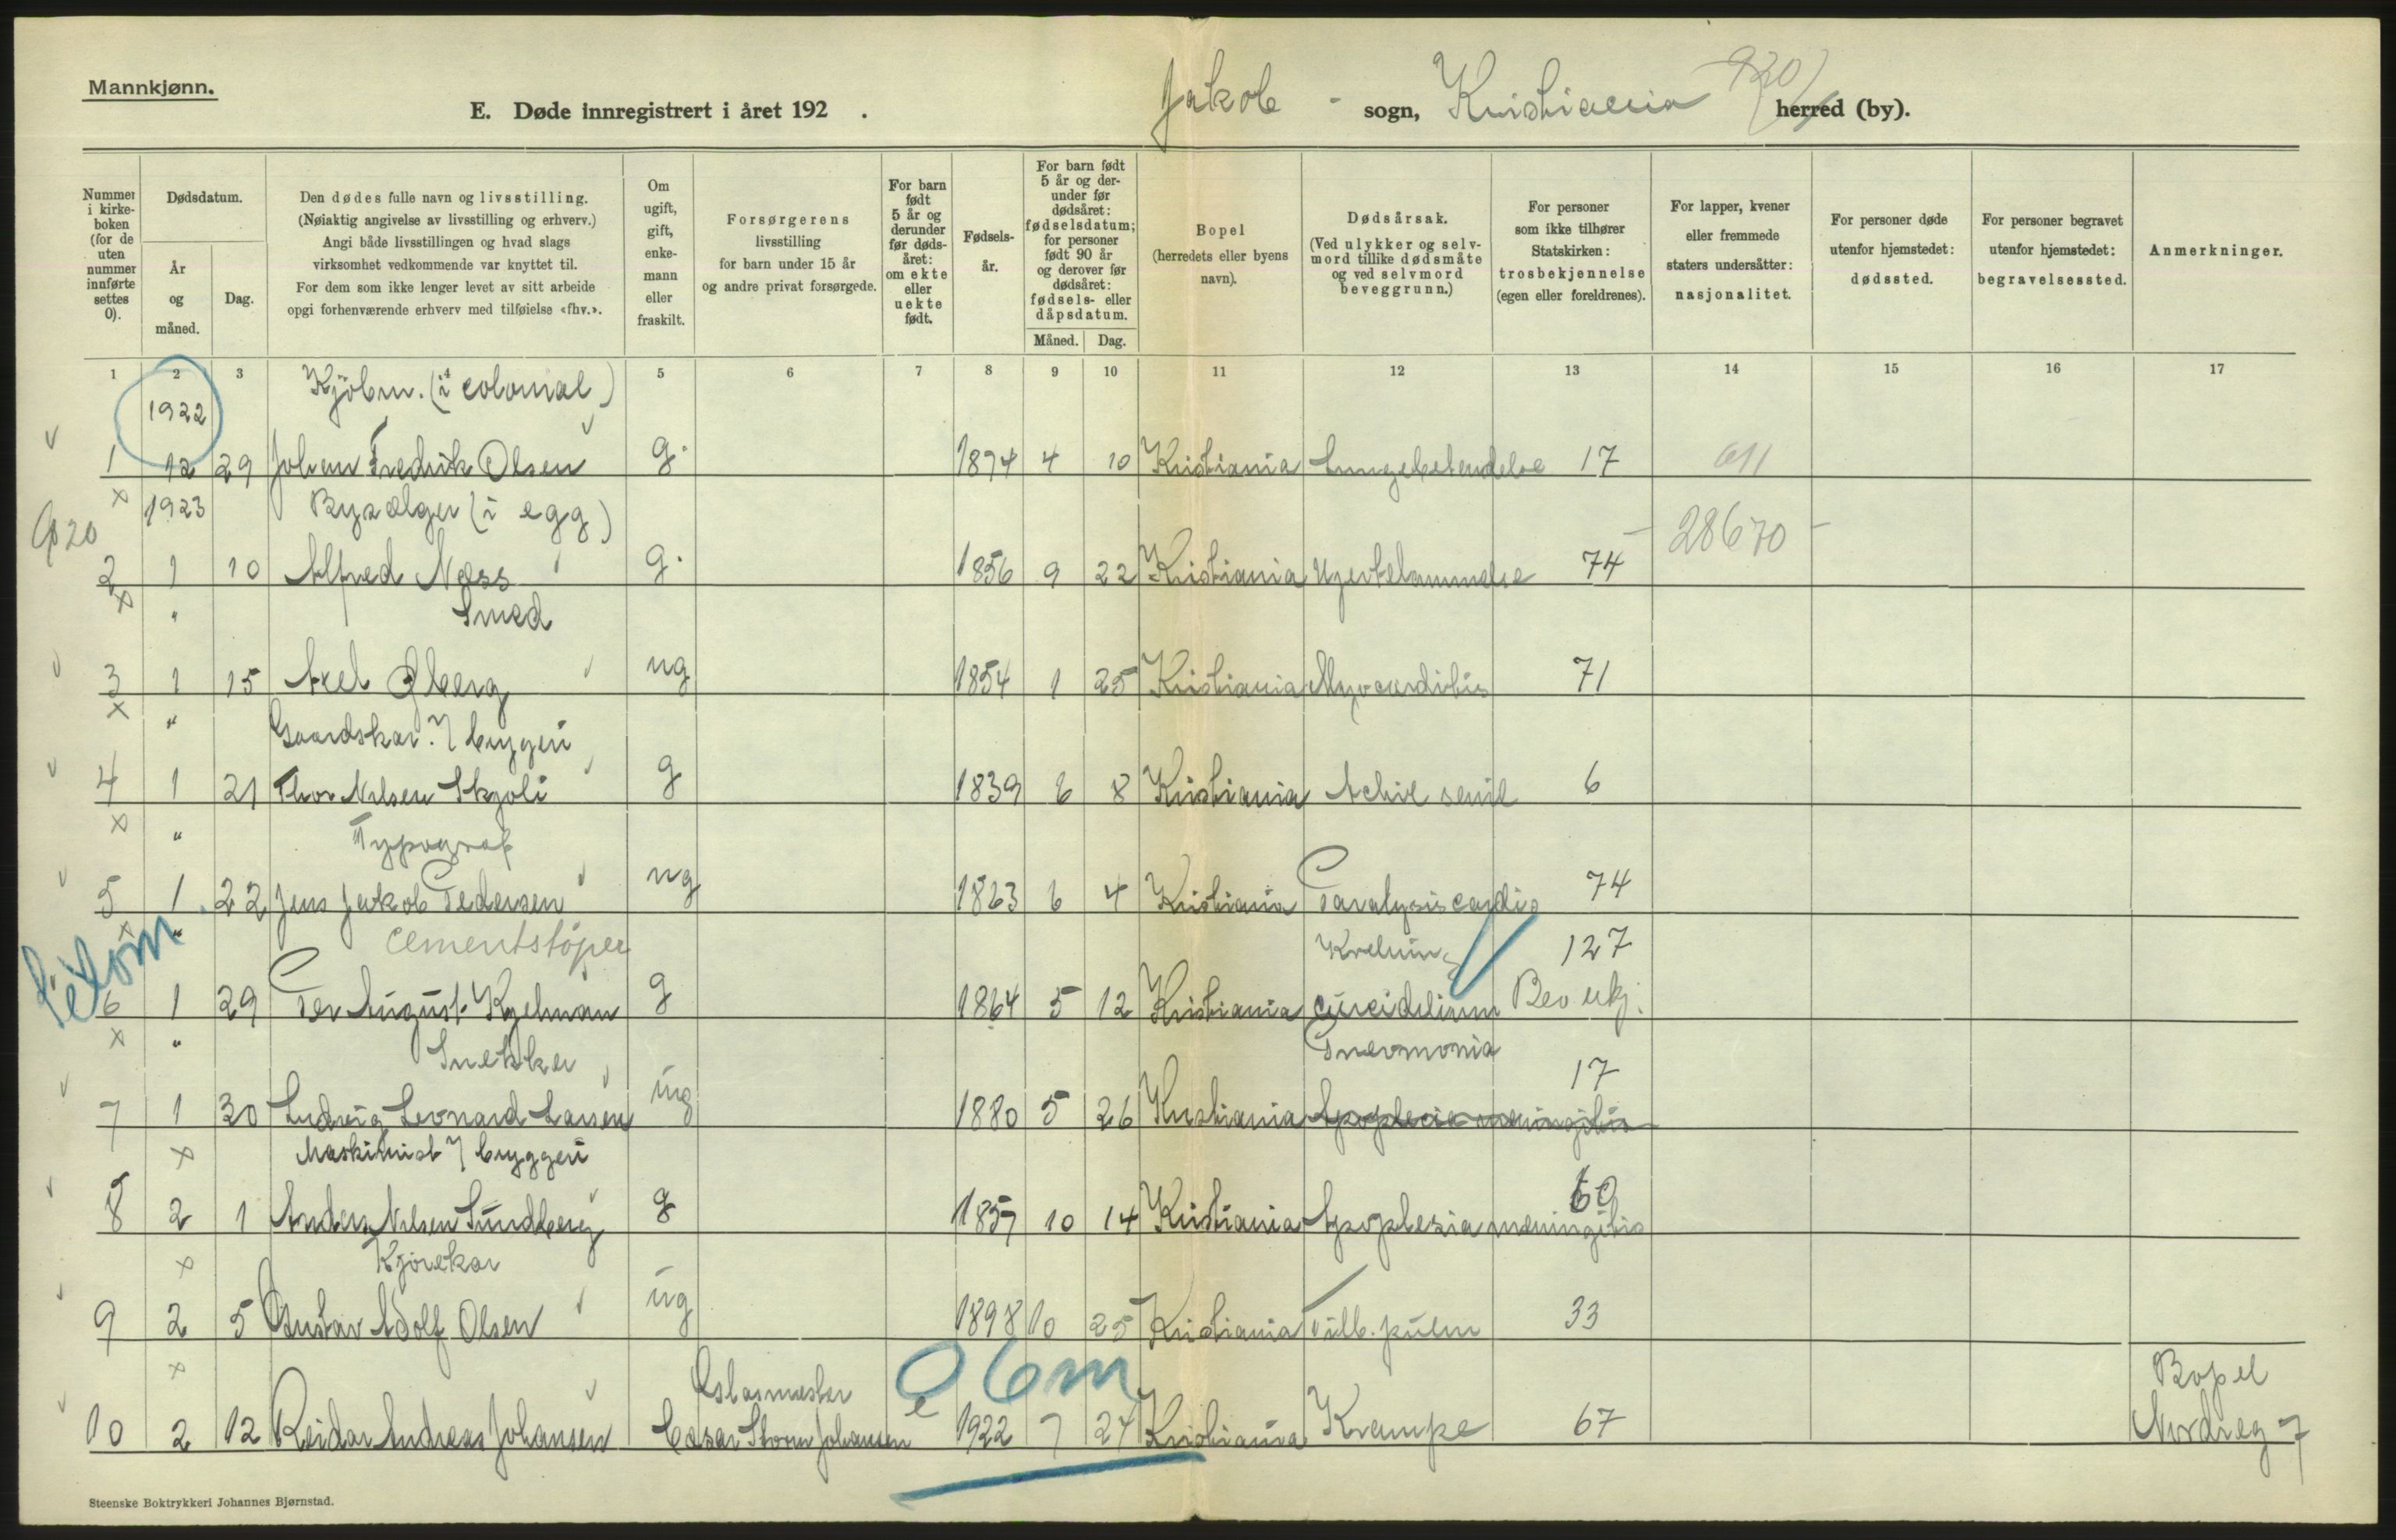 Mannkjønn.
E. Døde innregistrert i året 192 .
Jakob - sogn, Kristiania herred (by).
920
Nummer i kirkeboken (for de uten nummer innførte settes 0).
Dødsdatum.
År og måned.
Dag.
Den dødes fulle navn og livsstilling.
(Nøiaktig angivelse av livsstilling og erhverv.)
Angi både livsstillingen og hvad slags
virksomhet vedkommende var knyttet til.
For dem som ikke lenger levet av sitt arbeide
opgi forhenværende erhverv med tilføielse «fhv.».
Om ugift, gift, enkemann eller fraskilt.
Forsørgerens
livsstilling
for barn under 15 år
og andre privat forsørgede.
For barn født 5 år og derunder før dødsåret: om ekte eller uekte født.
Fødselsår.
For barn født 5 år og derunder før dødsåret: fødselsdatum; for personer født 90 år og derover før dødsåret: fødsels- eller dåpsdatum.
Måned. Dag.
Bopel
(herredets eller byens
navn).
Dødsårsak.
(Ved ulykker og selvmord tillike dødsmåte og ved selvmord beveggrunn.)
For personer
som ikke tilhører
Statskirken:
trosbekjennelse
(egen eller foreldrenes).
For lapper, kvener
eller fremmede
staters undersåtter:
nasjonalitet.
For personer døde
utenfor hjemstedet:
dødssted.
For personer begravet
utenfor hjemstedet:
begravelsessted.
Anmerkninger.
1 2 3 4 5 6 7 8 9 10 11 12 13 14 15 16 17
1922 Kjöbm. (i colonial)
1 12 29 Johan Fredrik Olsen g. 1874 4 10 Kristiania Lungebetendelse 17
1923 Byselger (i egg)
920 28670
2 1 10 Alfred Næss g. 1856 9 22 Kristiania Hjertelammelse 74
" Smed
3 1 15 Axel Øberg ug 1854 1 25 Kristiania Myocarditis 71
" Gaardskar. 7 bryggeri
4 1 21 Thor Nilsen Skjoli g 1839 6 8 Kristiania 6
" Typograf
5 1 22 Jens Jakob Pedersen ug 1863 6 4 Kristiania Paralysis cordis 74
" Cementstöper 127
6 1 29 Per August Kjelman g 1864 5 12 Kristiania
" Snekker Pnevmonia
7 1 30 Ludvig Leonard Larsen ug 1880 5 26 Kristiania Apoplexia meningitis 17
Maskinist 7 bryggeri
8 2 1 Anders Nilsen Sundberg g 1857 10 14 Kristiania Apoplexia meningitis 60
Kjörekar
9 2 5 Gustav Adolf Olsen ug 1898 10 25 Kristiania Tub. pulm 33
Bopel
10 2 12 Reidar Andreas Johansen Cæsar Thorn Johansen e 1922 7 24 Kristiania Krampe 67 Nordreg 7
Steenske Boktrykkeri Johannes Bjørnstad.